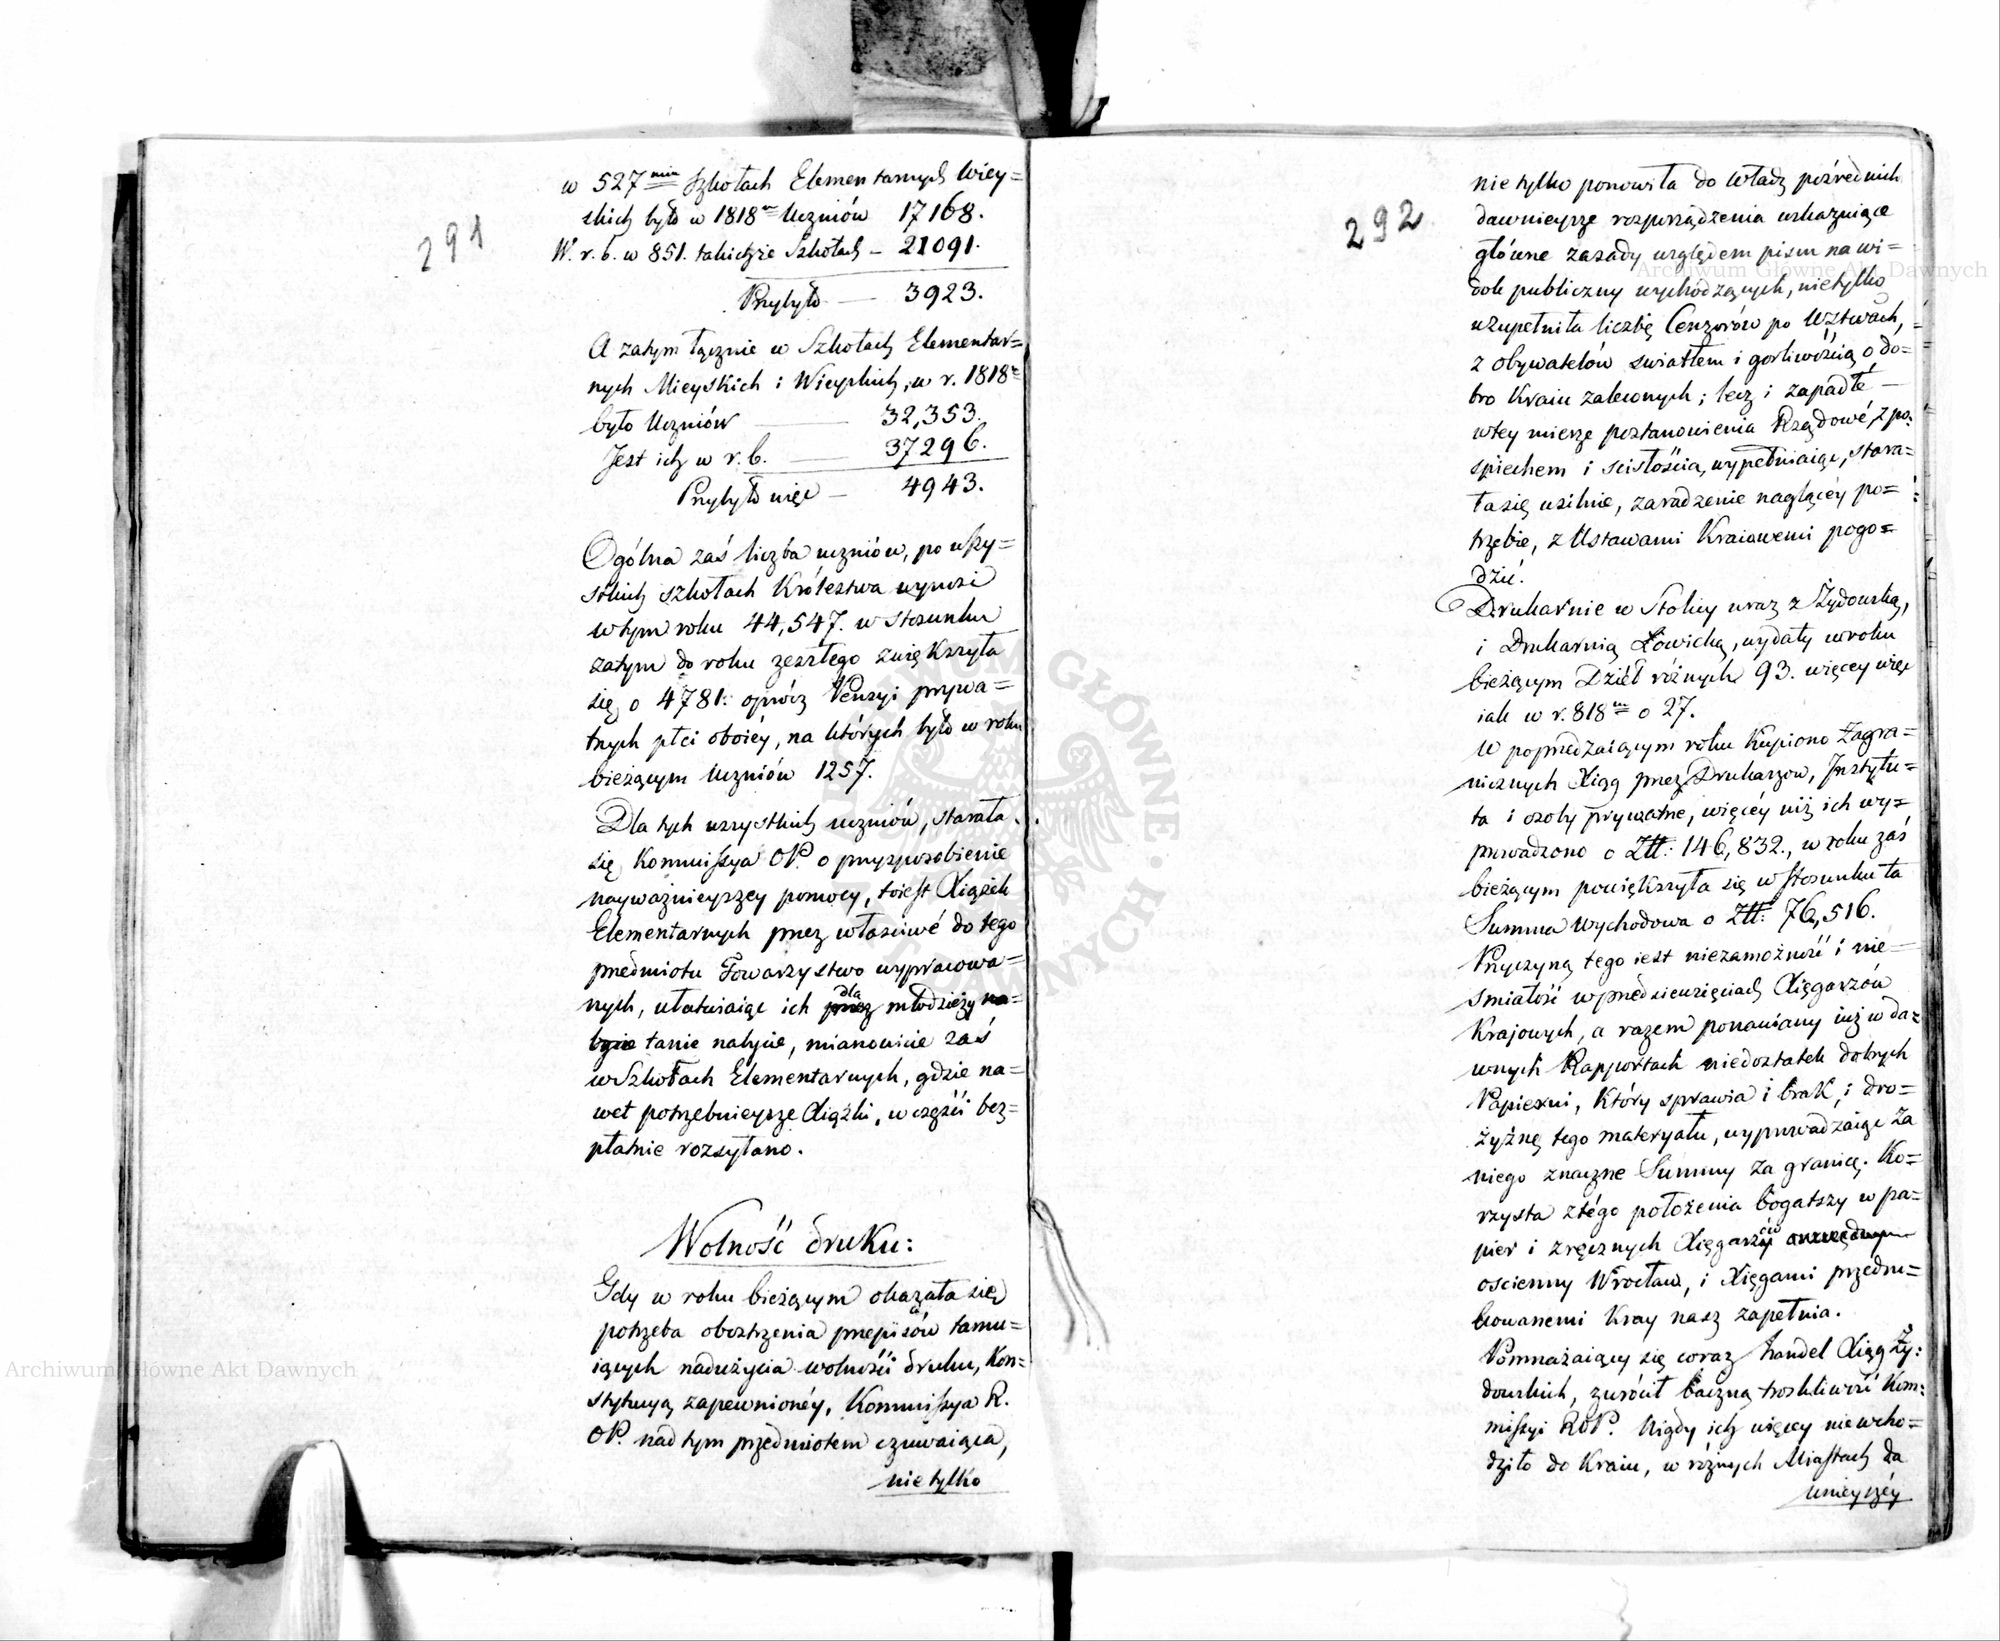 291
w 527miu Szkołach Elementarnych Wiey=
skich było w 1818m Uczniów 17168.
W. r. b. w 851. takichże Szkołach – 21091.
Przybyło — 3923.
A zatym łącznie w Szkołach Elementar=
nych Mieyskich i Wieyskich, w r. 1818m
było Uczniów — 32,353.
Jest ich w r. b. — 37296.
Przybyło więc — 4943.
Ogólna zaś liczba uczniów, po wszy=
stkich szkołach Królestwa wynosi
w tym roku 44,547. w stosunku
zatym do roku zeszłego zwiększyła
się o 4781. oprócz Pensyi prywa=
tnych płci oboiéy, na których było w roku
bieżącym Uczniów 1257.
Dla tych wszystkich uczniów, starała
się Kommissya OP. o przysposobienie
nayważnieyszey pomocy, toiest Xiążek
Elementarnych przez właściwé do tego
przedmiotu Towarzystwo wypracowa=
nych, ułatwiaiąc ich przez dla młodzieży na=
bycie tanie nabycie, mianowicie zaś
w Szkołach Elementarnych, gdzie na=
wet potrzebnieysze Xiążki, w części bez=
płatnie rozsyłano.
Wolność druku:
Gdy w roku bieżącym okazała się
potrzeba obostrzenia przepisów tamu=
iących nadużycia wolności druku, Kon=
stytucyą zapewnionéy, Kommissya R.
OP. nad tym przedmiotem czuwaiąca,
nietylko
292
nietylko ponowiła do Władz pośrednich
dawnieysze rozporządzenia wskazuiące
główne zasady względem pism na wi=
dok publiczny wychodzących, nietylko
uzupełniła liczbę Cenzorów po Wztwach,
z obywatelów swiatłem i gorliwością o do=
bro Kraiu zaleconych; lecz i zapadłé –
w tey mierze postanowienia Rządowé, z po=
spiechem i scisłością, wypełniaiąc, stara=
ła się usilnie, zaradzenie naglącéy po=
trzebie, z Ustawami Kraiowemi pogo=
dzić.
Drukarnie w Stolicy wraz z Żydowską,
i Drukarnią Łowicką, wydały w roku
bieżącym Dzieł różnych 93. więcey więc
iak w r. 818m o 27.
W poprzedzaiącym roku Kupiono Zagra=
nicznych Xiąg przez Drukarzow, Instytu=
ta i osoby prywatne, więcéy niż ich wy=
prowadzono o Złł: 146,832., w roku zaś
bieżącym powiększyła się w stosunku ta
Summa wychodowa o Złł: 76,516.
Przyczyną tego iest niezamożność i nie=
smiałość w przedsięwzięciach Xięgarzów
Krajowych, a razem ponawiany iuż w da=
wnych Rapportach niedostatek dobrych
Papierni, Który sprawia i brak, i dro=
żyznę tego materyału, wyprowadzaiąc za
niego znaczne Summy za granicę. Ko=
rzysta z tégo położenia bogatszy w pa=
pier i zręcznych Xięgarzów
oscienny Wrocław, i Xięgami przedru=
kowanemi Kray nasz zapełnia.
Pomnażaiący się coraz handel Xiąg Ży=
dowskich, zwrócił baczną troskliwość Kom=
missyi ROP. Nigdy ich więcey niewcho=
dziło do Kraiu, w różnych Miastach za
mnieyszéy
Archiwum Główne Akt Dawnych
Archiwum Główne Akt Dawnych